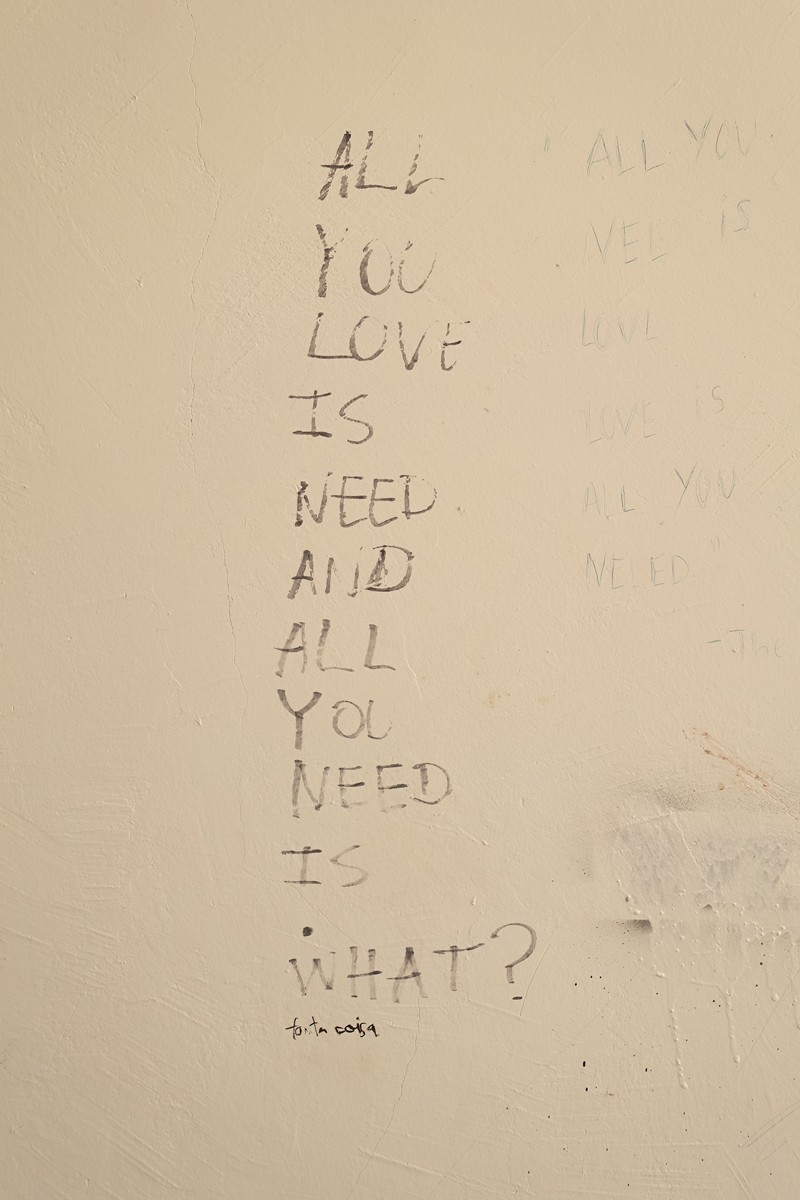 ALL
YOU
LOVE
IS
NEED
AND
ALL
YOU
NEED
IS
WHAT?
coisa
" ALL YOU
NEE IS
LOVE
LOVE IS
ALL YOU
NEED "
- The